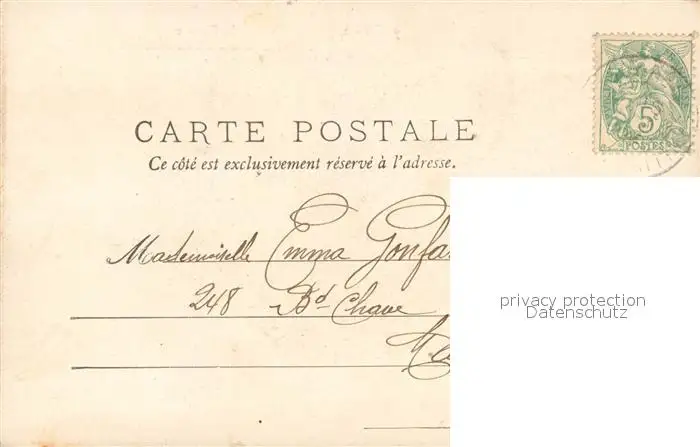 5c
POSTES
CARTE POSTALE
Ce côté est exclusivement réservé à l'adresse.
Mademoiselle Emma Gonfa
248 Bd Chave
privacy protection
Datenschutz